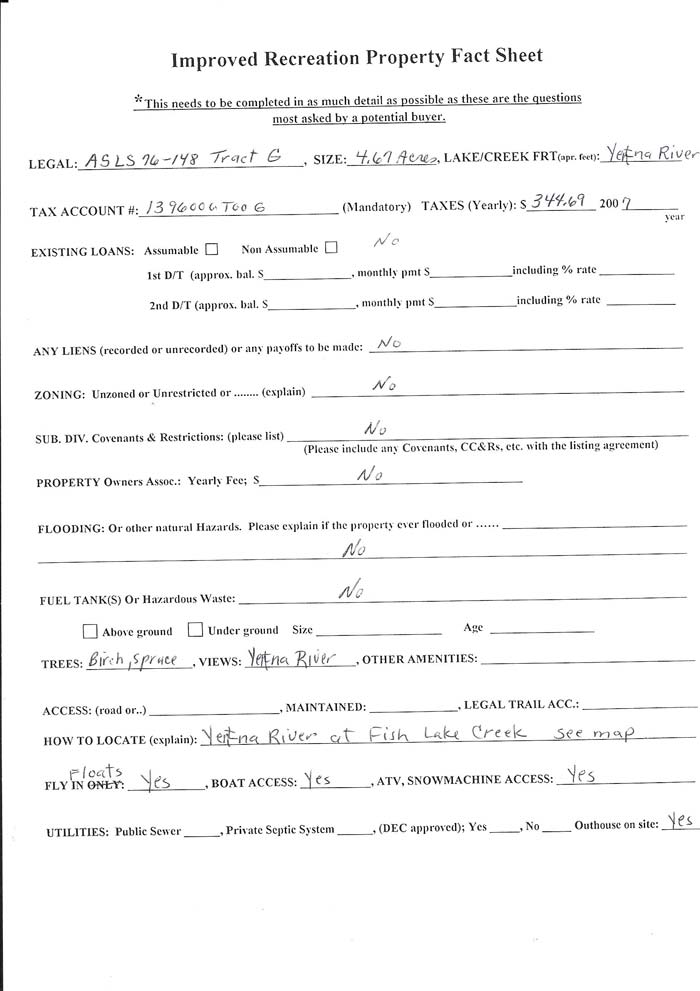 Improved Recreation Property Fact Sheet
*This needs to be completed in as much detail as possible as these are the questions
most asked by a potential buyer.
LEGAL: ASLS 76-148 Tract G, SIZE: 4.67 Acres, LAKE/CREEK FRT(apr. feet): Yentna River
TAX ACCOUNT #: 1396000T00G (Mandatory) TAXES (Yearly): $ 344.69 2007
year
EXISTING LOANS: Assumable ☐ Non Assumable ☐ No
1st D/T (approx. bal. $____________, monthly pmt $____________including % rate ____________
2nd D/T (approx. bal. $____________, monthly pmt $____________including % rate ____________
ANY LIENS (recorded or unrecorded) or any payoffs to be made: No
ZONING: Unzoned or Unrestricted or ........ (explain) No
SUB. DIV. Covenants & Restrictions: (please list) No
(Please include any Covenants, CC&Rs, etc. with the listing agreement)
PROPERTY Owners Assoc.: Yearly Fee; $ No
FLOODING: Or other natural Hazards. Please explain if the property ever flooded or ......
No
FUEL TANK(S) Or Hazardous Waste: No
☐ Above ground ☐ Under ground Size ____________ Age ____________
TREES: Birch, Spruce, VIEWS: Yentna River, OTHER AMENITIES:
ACCESS: (road or..) ____________, MAINTAINED: ____________, LEGAL TRAIL ACC.: ____________
HOW TO LOCATE (explain): Yentna River at Fish Lake Creek see map
Floats
FLY IN ONLY: Yes, BOAT ACCESS: Yes, ATV, SNOWMACHINE ACCESS: Yes
UTILITIES: Public Sewer ______, Private Septic System ______, (DEC approved); Yes _____, No _____ Outhouse on site: Yes